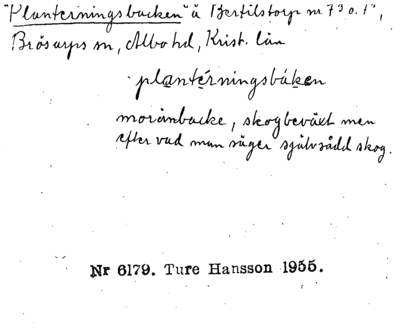 "Planterningsbacken" å Bertilstorp nr 7³ o. 1⁷,
Brösarps sn, Albo hd, Krist. län
plantérningsbáken
moränbacke, skogbeväxt men
efter vad man säger självsådd skog.
Nr 6179. Ture Hansson 1955.